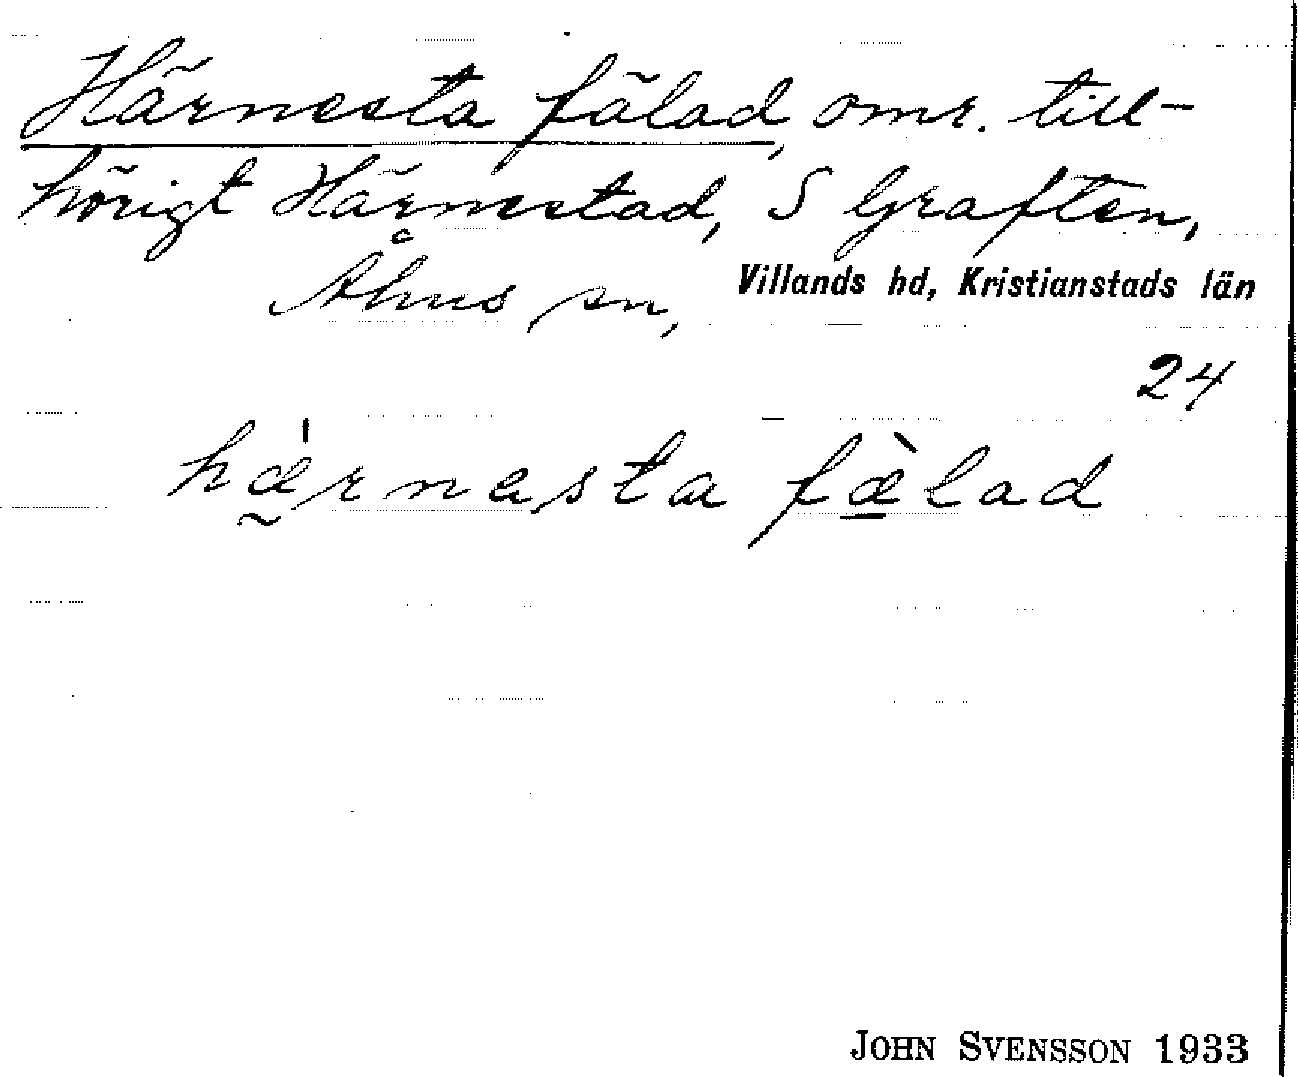 Härnesta fälad, omr. till-
hörigt Härnestad, S Graften,
Åhus sn, Villands hd, Kristianstads län
24
hæ̰̀rnesta fæ̱̀lad
JOHN SVENSSON 1933